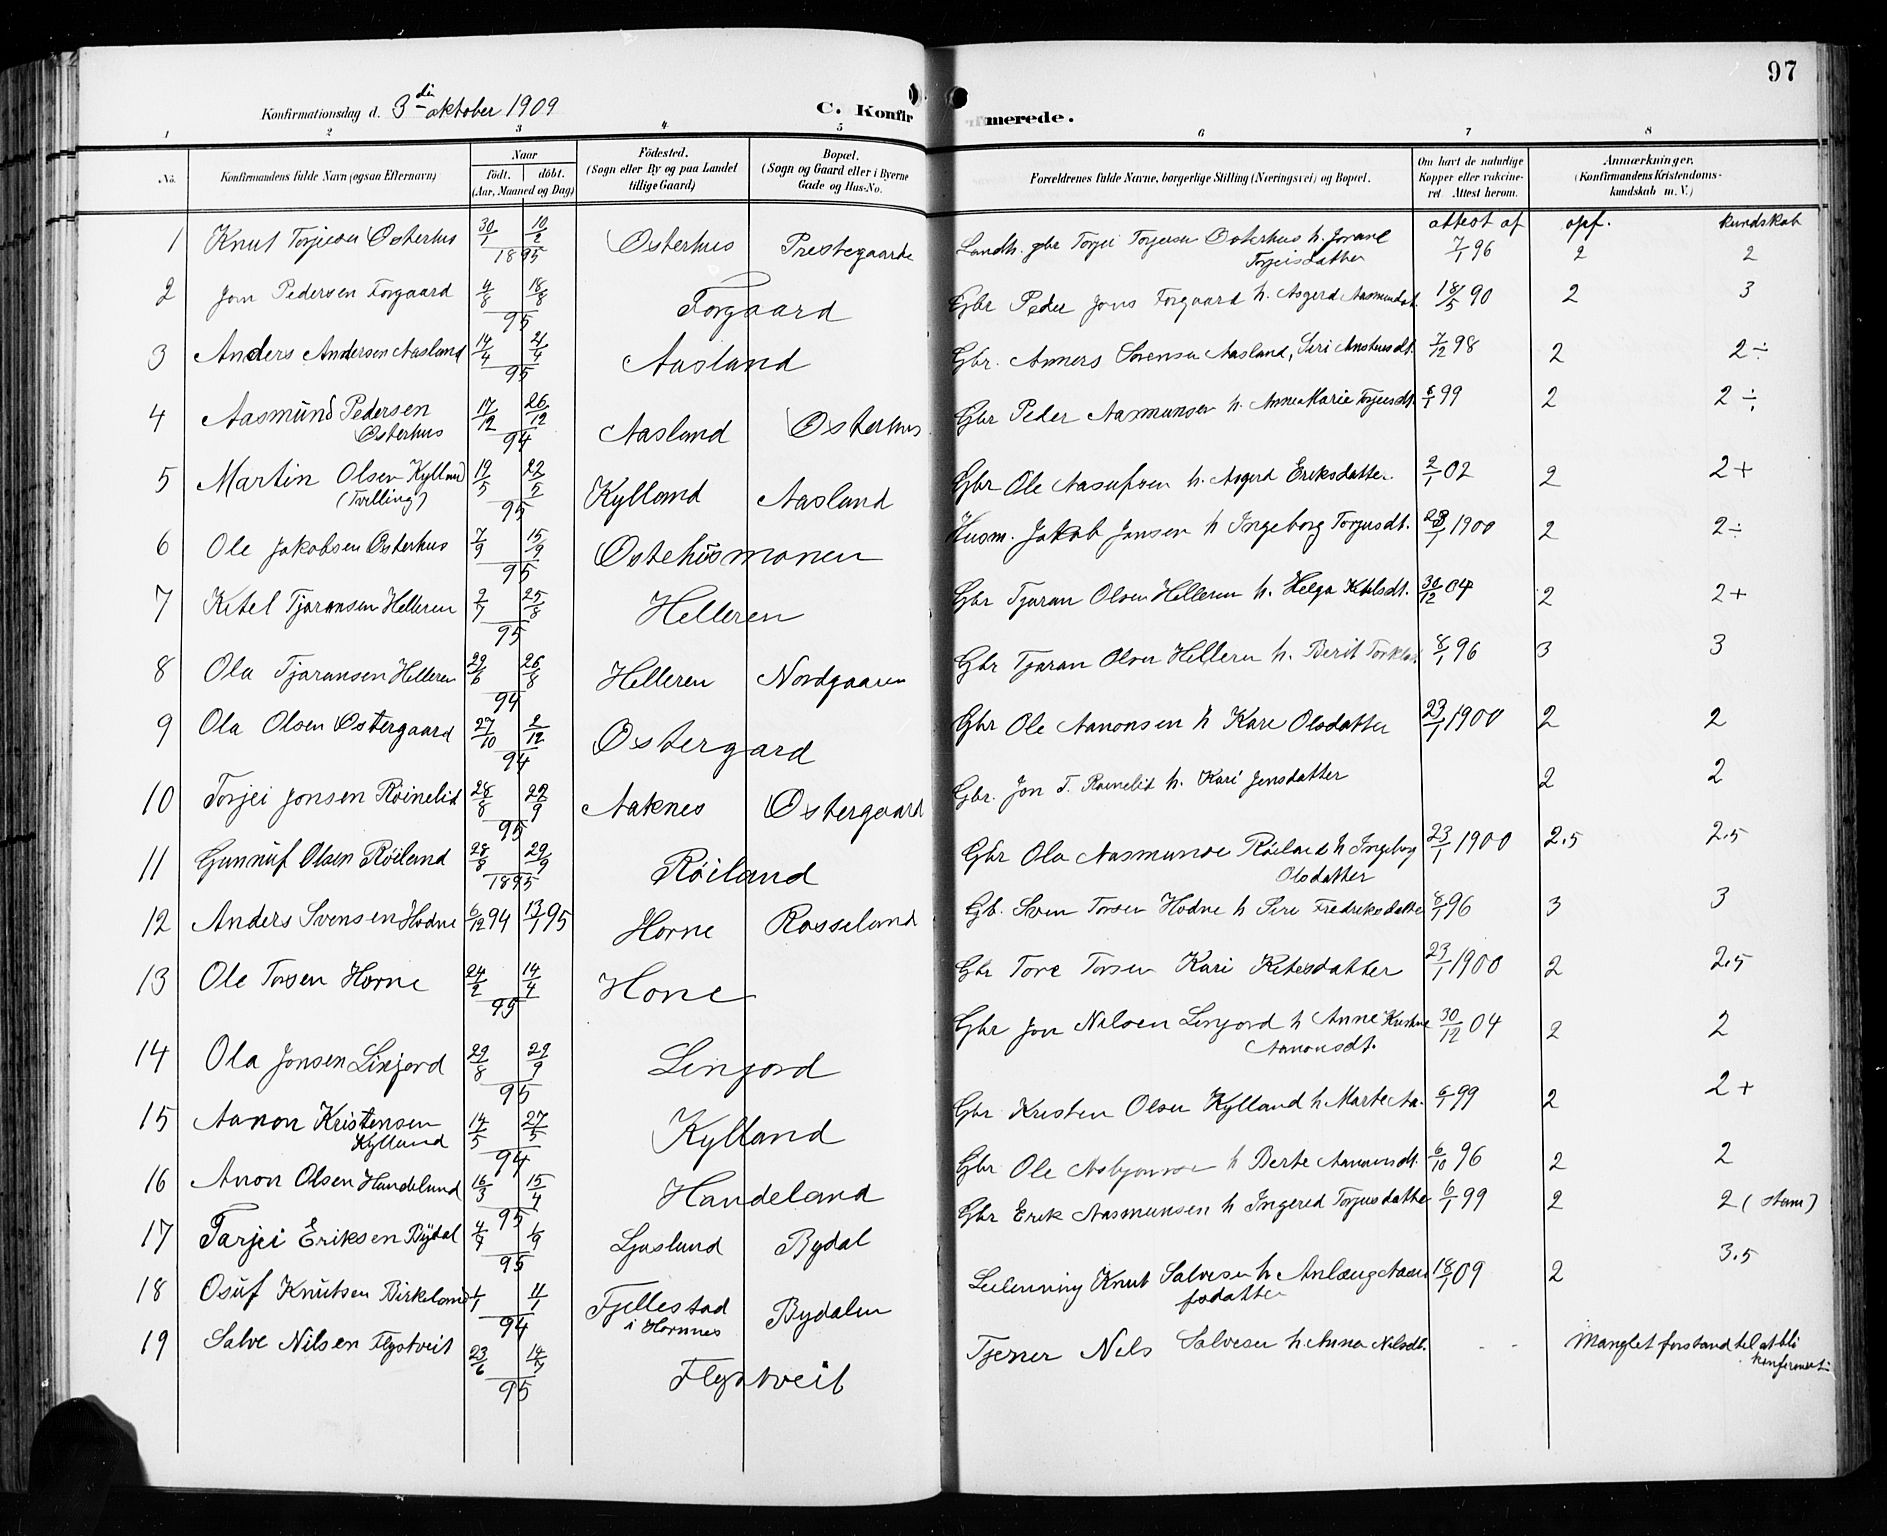 97
Konfirmationsdag d. 3 die oktober 1909 C. Konfirmerede.
1 2 3 4 5 6 7 8
No. Konfirmandens fulde Navn (ogsaa Efternavn) Naar født. døbt. (Aar, Maaned og Dag) Fødested. (Sogn eller By og paa Landet tillige Gaard) Bopæl. (Sogn og Gaard eller i Byerne Gade og Hus-No. Forældrenes fulde Navne, borgerlige Stilling (Næringsvei) og Bopæl. Om havt de naturlige Kopper eller vakcineret. Attest herom. Anmærkninger. (Konfirmandens Kristendomskundskab m. V.)
attest af opf. kundskab
1 Knut Torjesen Osterhus 30/1 10/2 1895 Osterhus Prestegaarde Landh. gbr Torjei Torjusen Osterhus h. Jorand Torjeisdatter 7/1 96 2 2
2 Jon Pedersen Forgaard 4/8 18/8 95 Forgaard Gbr Peder Jons Forgaard h. Asgerd Aasmundsdt. 18/5 90 2 3
3 Anders Andersen Aasland 14/4 21/4 95 Aasland Gbr. Anners Sorensen Aasland, Siri 7/12 98 2 2÷
4 Aasmund Pedersen Osterhus 17/12 26/12 94 Aasland Osterhus Gbr Peder Aasmunsen h. Anne Marie Torjusdt. 6/1 99 2 2÷
5 Martin Olsen Kylland (Tvilling) 19/5 22/5 95 Kylland Aasland Gbr Ole Aasufsen h. Asgerd Eriksdatter 2/1 02 2 2+
6 Ole Jakobsen Osterhus 7/9 15/9 95 Ostehusmonen Husm. Jakob Jansen h Ingeborg Torjusdt. 23/1 1900 2 2÷
7 Ketel Tjøransen Helleren 2/7 25/8 95 Helleren Gbr Tjøran Olsen Helleren h. Helga Ketilsdt. 30/12 04 2 2+
8 Ola Tjøransen Helleren 29/6 26/8 94 Helleren Nordgaaren Gbr Tjøran Olsen Helleren h. Berit 8/1 96 3 3
9 Ola Olsen Ostergaard 27/10 2/12 94 Ostergard Gbr Ole Aanonsen h Kari Olsdatter 23/1 1900 2 2
10 Torjei Jonsen Røinelid 28/8 22/9 95 Aaknes Ostergaard Gbr. Jon T. Røinelid h. Kari Jensdatter 2 2
11 Gunnuf Olsen Røiland 28/8 29/9 1895 Røiland Gbr Ola Aasmunse Røiland h Ingeborg Olsdatter 23/1 1900 2.5 2.5
12 Anders Svensen Hodne 6/12 94 13/1 95 Horne Rosseland Gb. Sven Torsen Hodne h Siri Fredriksdatter 8/1 96 3 3
13 Ole Torsen Horne 24/2 14/4 95 Hone Gbr Tore Torsen Kari Ketesdatter 23/1 1900 2 2.5
14 Ola Jonsen Linjord 29/8 29/9 95 Linjord Gbr Jon Nilsen Linjord h Anne Kistine Aanonsdt. 30/12 04 2 2
15 Aanon Kristensen Kylland 14/5 27/5 94 Kylland Gbr Kristen Olsen Kylland h Marte Aa. 6/1 99 2 2+
16 Anon Olsen Handeland 16/3 15/4 95 Handeland Gbr Ole Asbjonnsen h Berte Aanonsdt. 6/10 96 2 2
17 Tarjei Eriksen Bydal 4/7 1/9 95 Ljosland Bydal Gbr Erik Aasmunsen h Ingerid Torjusdatter 6/1 99 2 2 (stam)
18 Osuf Knutsen Birkeland 1/1 11/1 94 Fjellestad i Hornnes Bydalen Knut Salvesen h. Aslaug 18/1 09 2 3.5
19 Salve Nilsen Flystveit 23/6 14/7 95 Flystveit Tjener Nils Salvesen h. Anna Nilsdt. - - Manglet forstand til at bli konfirmert